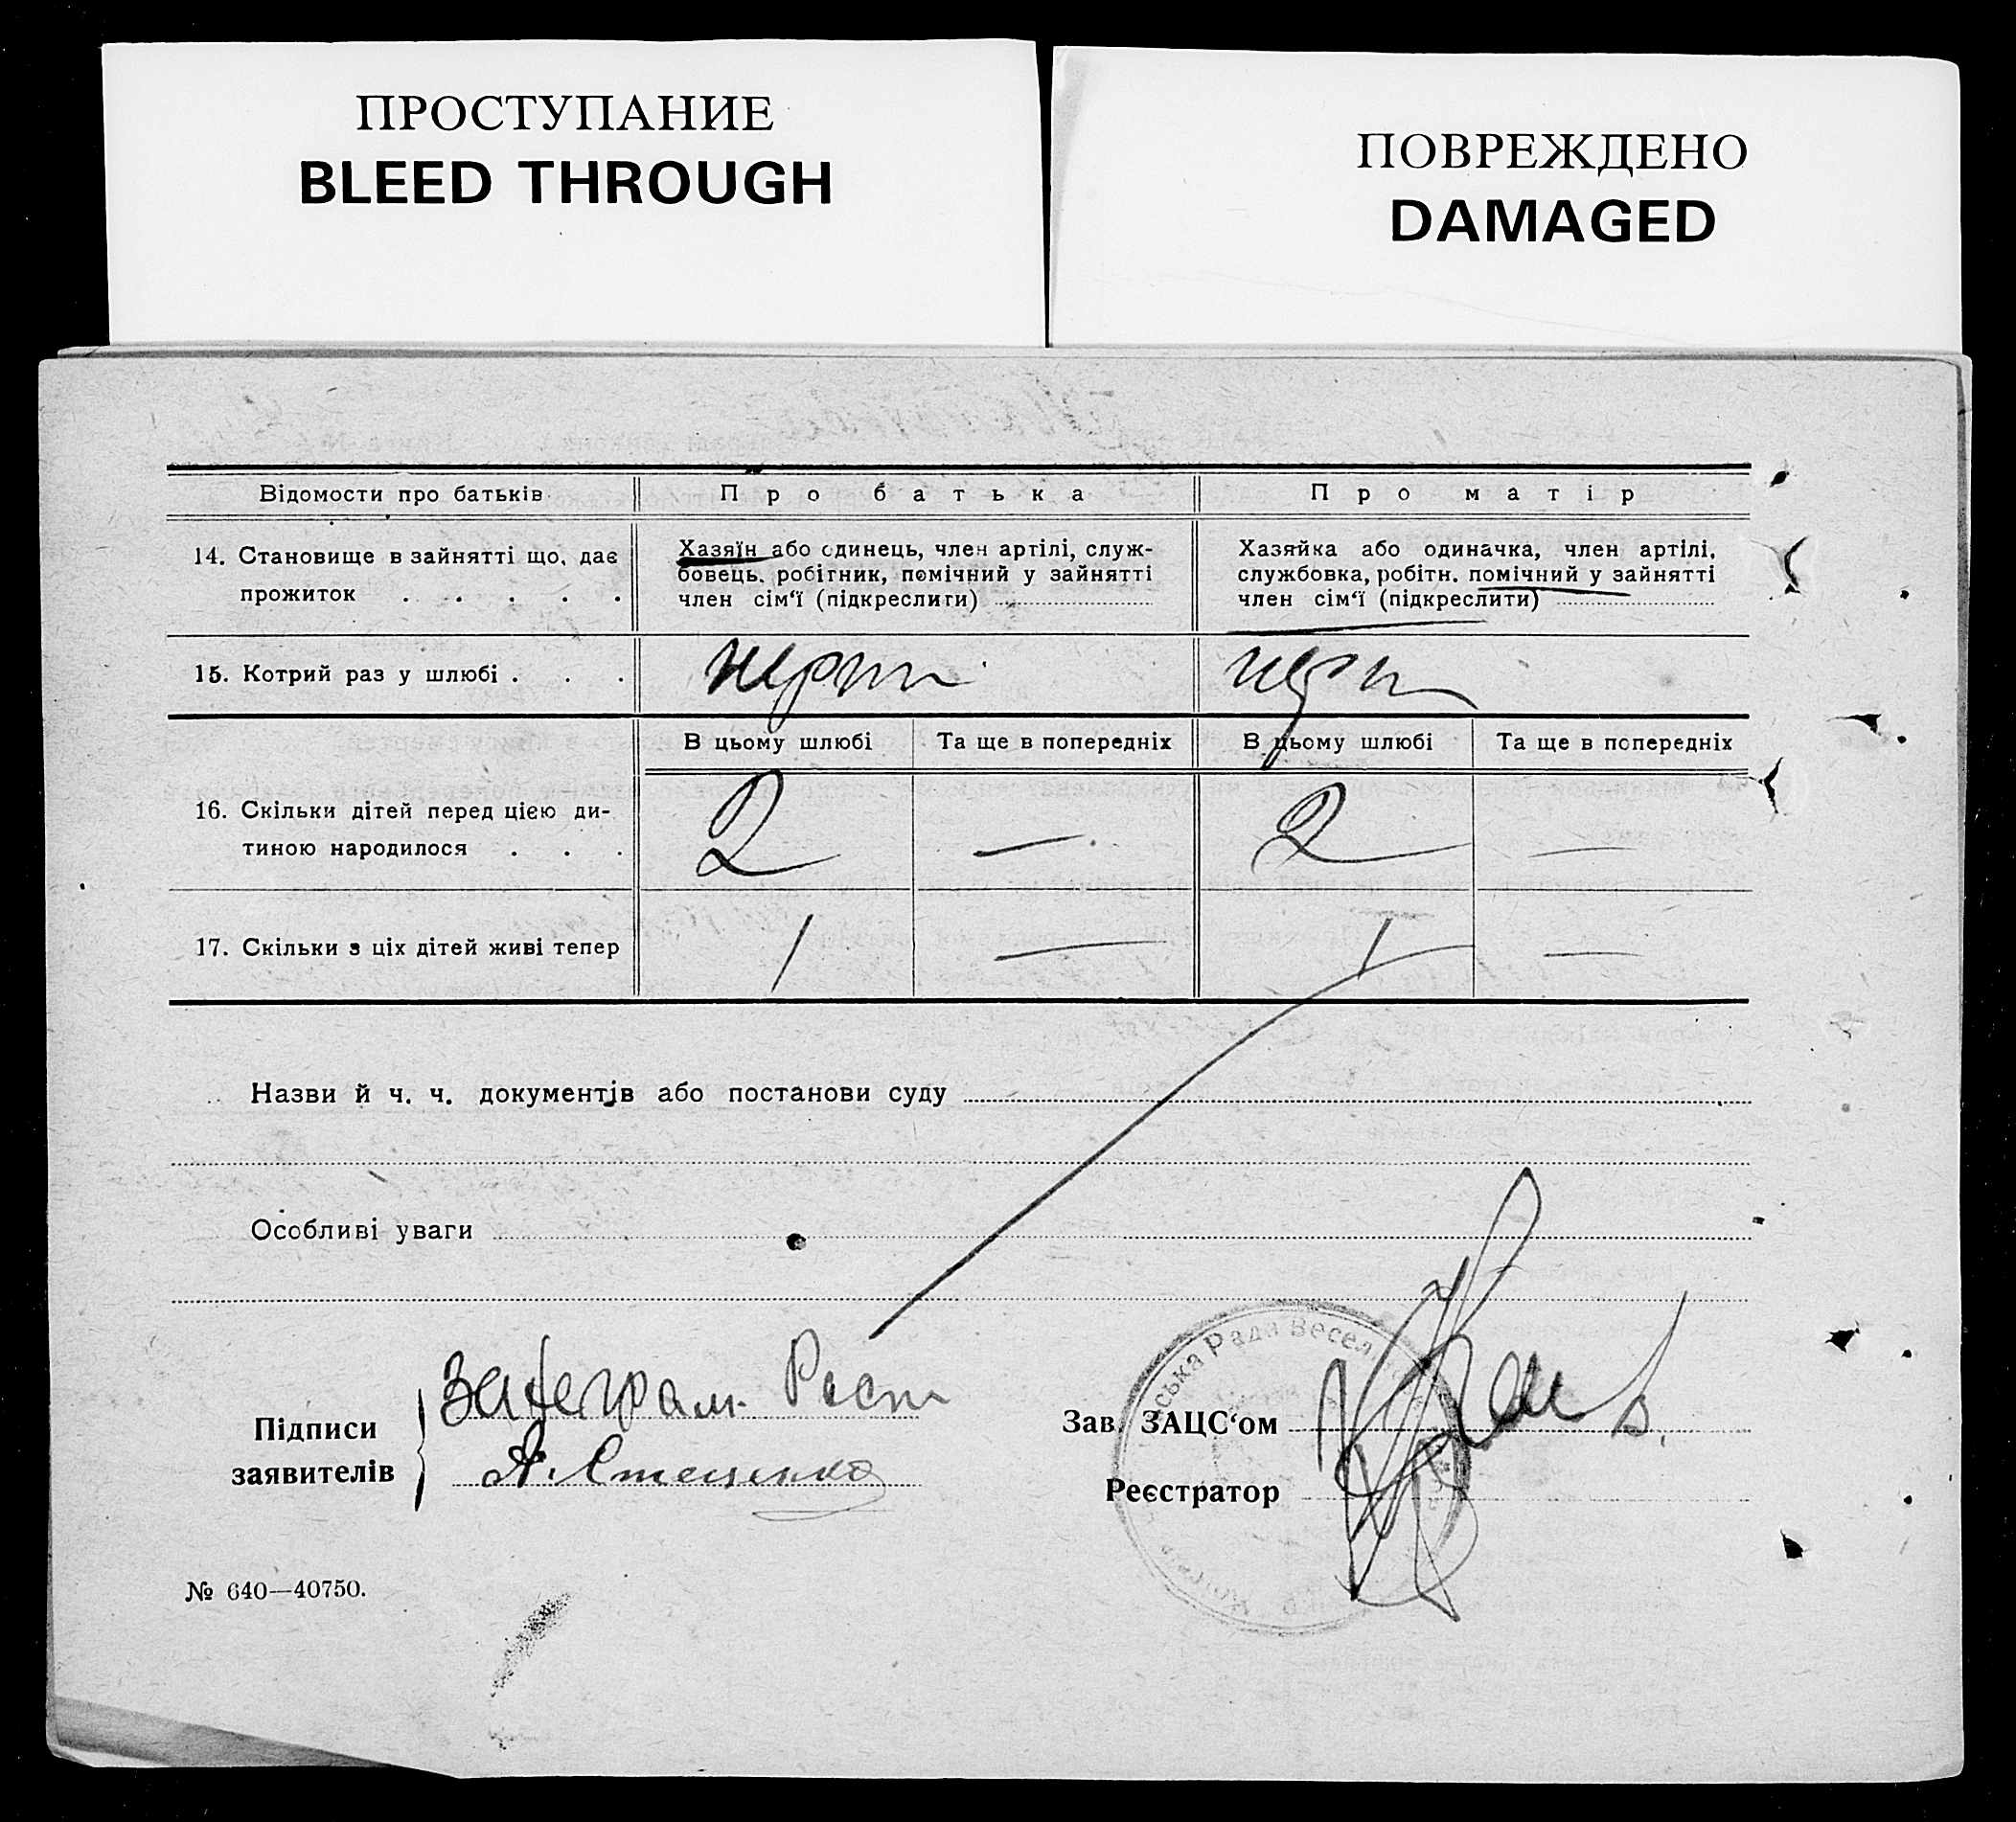 ПРОСТУПАНИЕ
BLEED THROUGH
ПОВРЕЖДЕНО
DAMAGED
Відомости про батьків
Про батька
Про матір
14. Становище в зайнятті що, дає
прожиток . . . . .
Хазяїн або одинець, член артілі, служ-
бовець, робітник, помічний у зайнятті
член сім‘ї (підкреслити)
Хазяйка або одиначка, член артілі,
службовка, робітн. помічний у зайнятті
член сім‘ї (підкреслити)
15. Котрий раз у шлюбі . . .
перш
перш
В цьому шлюбі
Та ще в попередніх
В цьому шлюбі
Та ще в попередніх
16. Скільки дітей перед цією ди-
тиною народилося . . .
2
—
2
—
17. Скільки з ціх дітей живі тепер
1
—
1
—
Назви й ч. ч. документів або постанови суду
Особливі уваги
Підписи
заявителів
А. Стеценко
Зав. ЗАЦС‘ом
Реєстратор
ська Рада Весел
№ 640—40750.